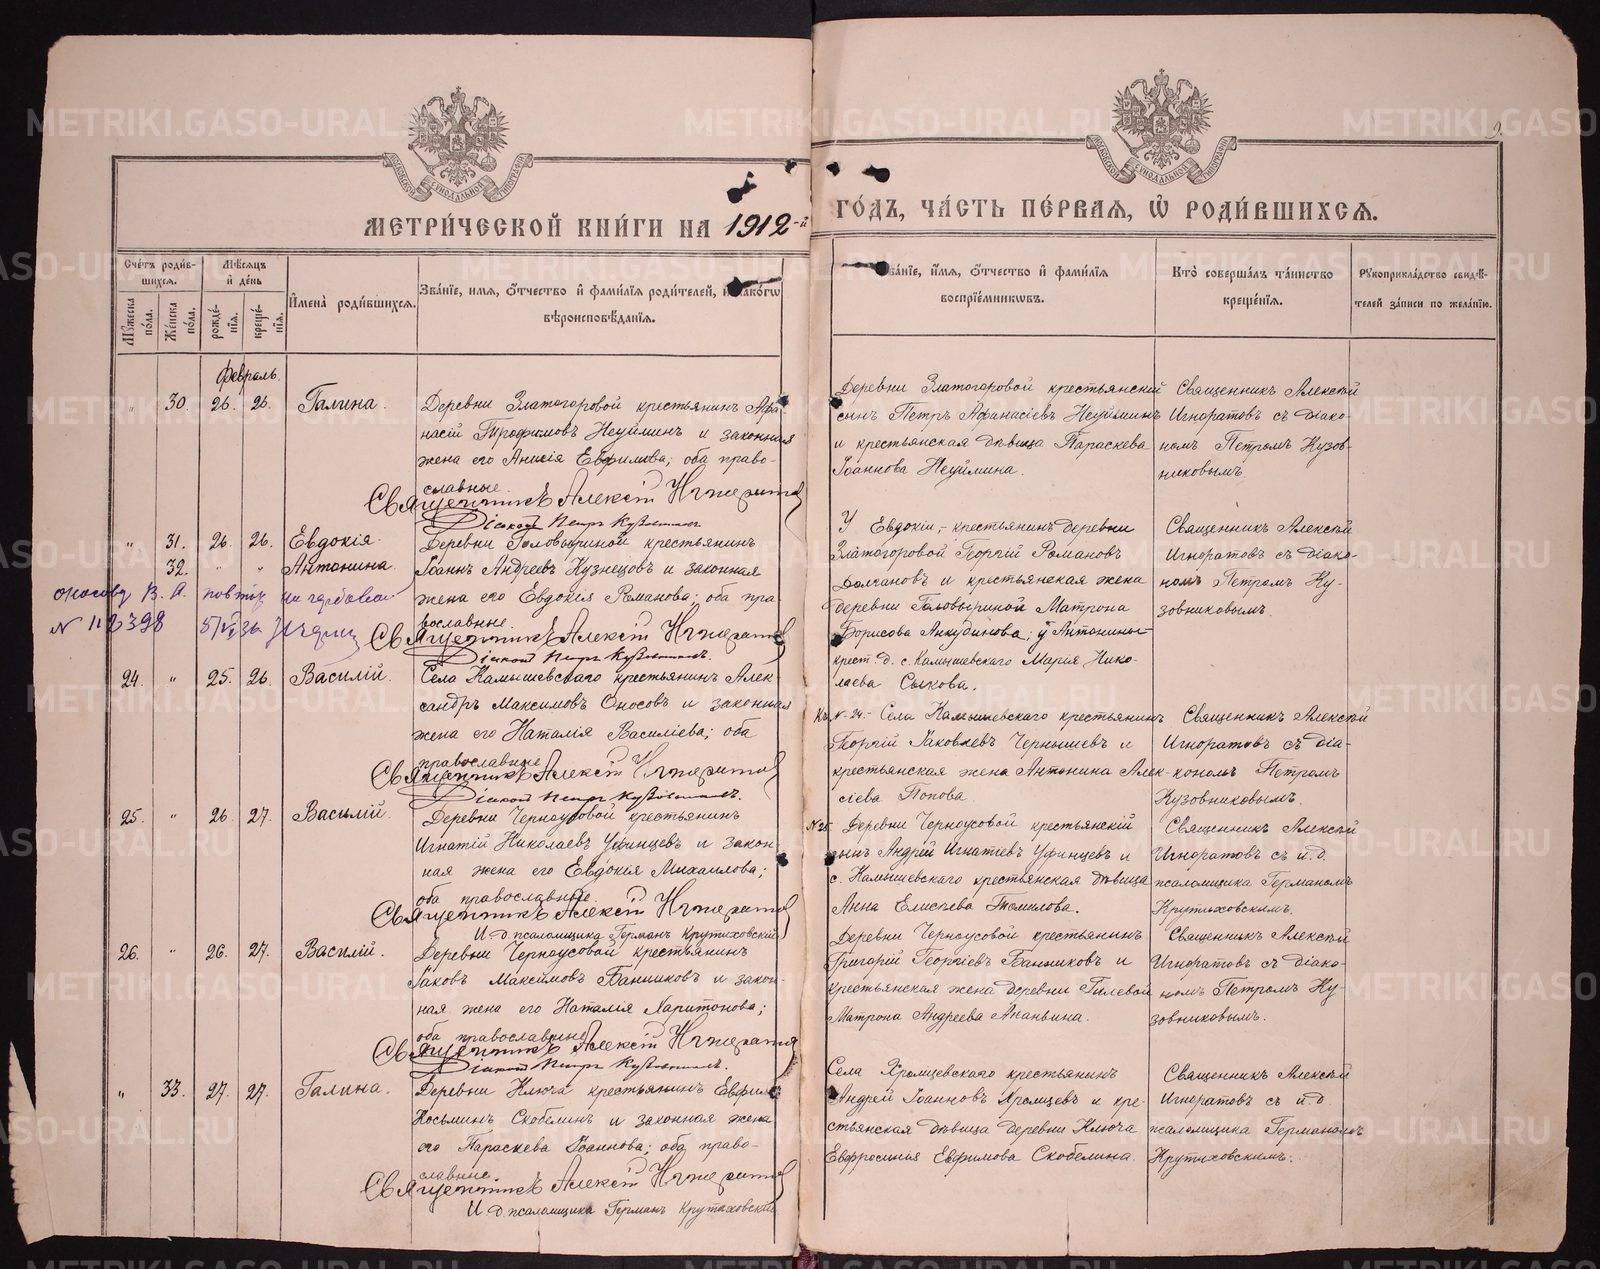 МЕТРИ́ЧЕСКОЙ КНИ́ГИ НА 1912-й ГО́ДЪ, ЧА́СТЬ ПЕ́РВАЯ, Ѡ҆ РОДИ́ВШИХСѦ.
9.
Сче́тъ роди́в-
шихсѧ.
Мꙋжеска по́ла.
Же́нска по́ла.
Мѣ́сѧцъ
и҆ де́нь
рожде́-
нїѧ.
креще́-
нїѧ.
И҆мена̀ роди́вшихсѧ.
Зва́нїе, имѧ, ѻ҆́тчество и҆ фами́лїѧ роди́телей, и҆ како́гѡ
вѣроисповѣ́данїѧ.
зва́нїе, и҆́мѧ, ѻ҆́тчество и҆ фами́лїѧ
воспрїе́мниковъ.
Кто̀ соверша́лъ та́инство
креще́нїѧ.
Рꙋкоприкла́дство свидѣ́-
телей за́писи по жела́нїю.
Февраль.
" 30. 26. 26. Галина.
Деревни Златогоровой крестьянинъ Афа-
насій Трофимовъ Неуйминъ и законная
жена его Анисія Евфимова; оба право-
славные.
Священникъ Алексій Игноратовъ
Діаконъ Петръ Кузовниковъ
Деревни Златогоровой крестьянскій
сынъ Петръ Афанасіевъ Неуйминъ
и крестьянская дѣвица Параскева
Іоаннова Неуймина.
Священникъ Алексѣй
Игноратовъ съ діако-
номъ Петромъ Кузов-
никовымъ
" 31. 26. 26. Евдокія.
32. " " Антонина.
Деревни Головыриной крестьянинъ
Іоаннъ Андреевъ Кузнецовъ и законная
жена его Евдокія Романова; оба пра-
вославные.
Священникъ Алексій Игноратовъ
Діаконъ Петръ Кузовниковъ.
У Евдокіи,- крестьянинъ деревни
Златогоровой Георгій Романовъ
Долгановъ и крестьянская жена
деревни Головыриной Матрона
Борисова Анкудинова; у Антонины-
крест. д. с. Камышевскаго Марія Нико-
лаева Сыкова.
Священникъ Алексѣй
Игноратовъ съ діако-
номъ Петромъ Ку-
зовниковымъ.
Оносову В. А.
24. " 25. 26. Василій.
Села Камышевскаго крестьянинъ Алек-
сандръ Максимовъ Оносовъ и законная
жена его Наталія Василіева; оба
православные
Священникъ Алексій Игноратовъ
Діаконъ Петръ Кузовниковъ.
Къ № 24.- Села Камышевскаго крестьянинъ
Георгій Іаковлевъ Чернышевъ и
крестьянская жена Антонина Алек-
сіева Попова.
Священникъ Алексѣй
Игноратовъ съ діа-
кономъ Петромъ
Кузовниковымъ.
25. " 26. 27. Василій.
Деревни Черноусовой крестьянинъ
Игнатій Николаевъ Уфинцевъ и закон-
ная жена его Евдокія Михаилова;
оба православные.
Священникъ Алексій Игноратовъ
И. д. псаломщика Германъ Крутиховскій
№ 25. Деревни Черноусовой крестьянскій
сынъ Андрей Игнатіевъ Уфинцевъ и
с. Камышевскаго крестьянская дѣвица
Анна Елисѣева Томилова.
Священникъ Алексѣй
Игноратовъ съ и. д.
псаломщика Германомъ
Крутиховскимъ.
26. " 26. 27. Василій.
Деревни Черноусовой крестьянинъ
Іаковъ Максимовъ Банниковъ и закон-
ная жена его Наталія Харитонова;
оба православные
Священникъ Алексій Игноратовъ
Діаконъ Петръ Кузовниковъ.
Деревни Черноусовой крестьянинъ
Григорій Георгіевъ Банниковъ и
крестьянская жена деревни Гилевой
Матрона Андреева Ананьина.
Священникъ Алексѣй
Игноратовъ съ діако-
номъ Петромъ Ку-
зовниковымъ.
" 33. 27. 27. Галина.
Деревни Ключа крестьянинъ Евфимъ
Косьминъ Скобелинъ и законная жена
его Параскева Іоаннова; оба право-
славные.
Священникъ Алексій Игноратовъ
И. д. псаломщика Германъ Крутиховскій
Села Хромцевскаго крестьянинъ
Андрей Іоанновъ Хромцевъ и кре-
стьянская дѣвица деревни Ключа
Евфросинія Евфимова Скобелина.
Священникъ Алексѣй
Игноратовъ съ и. д.
псаломщика Германомъ
Крутиховскимъ.
METRIKI.GASO-URAL.RU